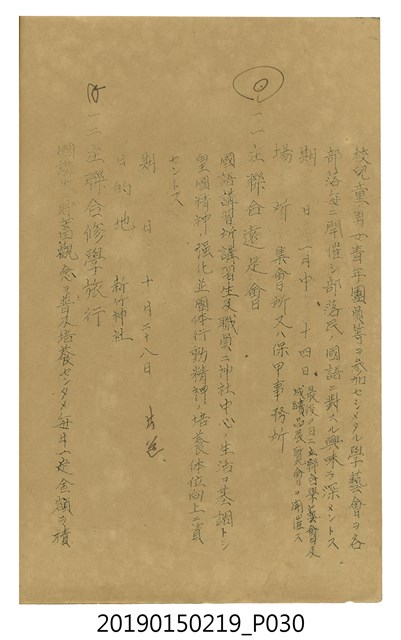 校兒童男女青年團員等ヲ參加セシメタル學藝會ヲ各
部落每ニ開催シ部落民ノ國語ニ對スル興味ヲ深メントス
期日 一月中、十四日、最後ノ日ニ
成績品展覽會ヲ開催ス
場所 集會所又ハ保甲事務所
一一、庄聯合遠足會
國語講習所講習生及職員ニ神社中心ノ生活ヲ基調トシ
皇國精神ノ強化並團体行動精神ノ培養体位向上ニ資
セントス
期日 十月二十八日
目的地 新竹神社
一二、庄聯合修學旅行
貯蓄觀念ヲ普及培養センタメ每月一定金額ヲ積
20190150219_P030